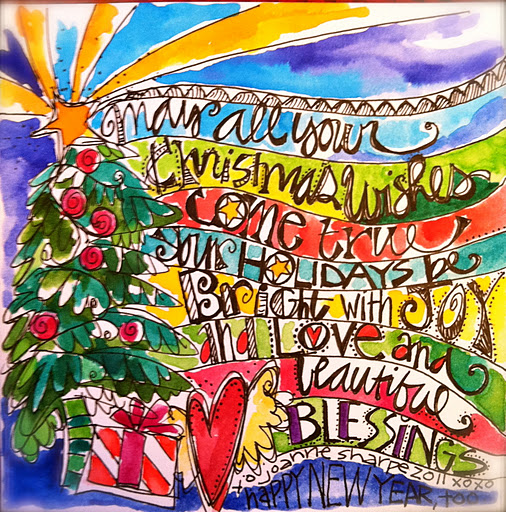 may all your
Christmas wishes
come true,
your HOLIDAYS be
Bright with JOY
and Love and
beautiful
BLESSINGS
joanne sharpe 2011 xoxo
happy NEW YEAR, too